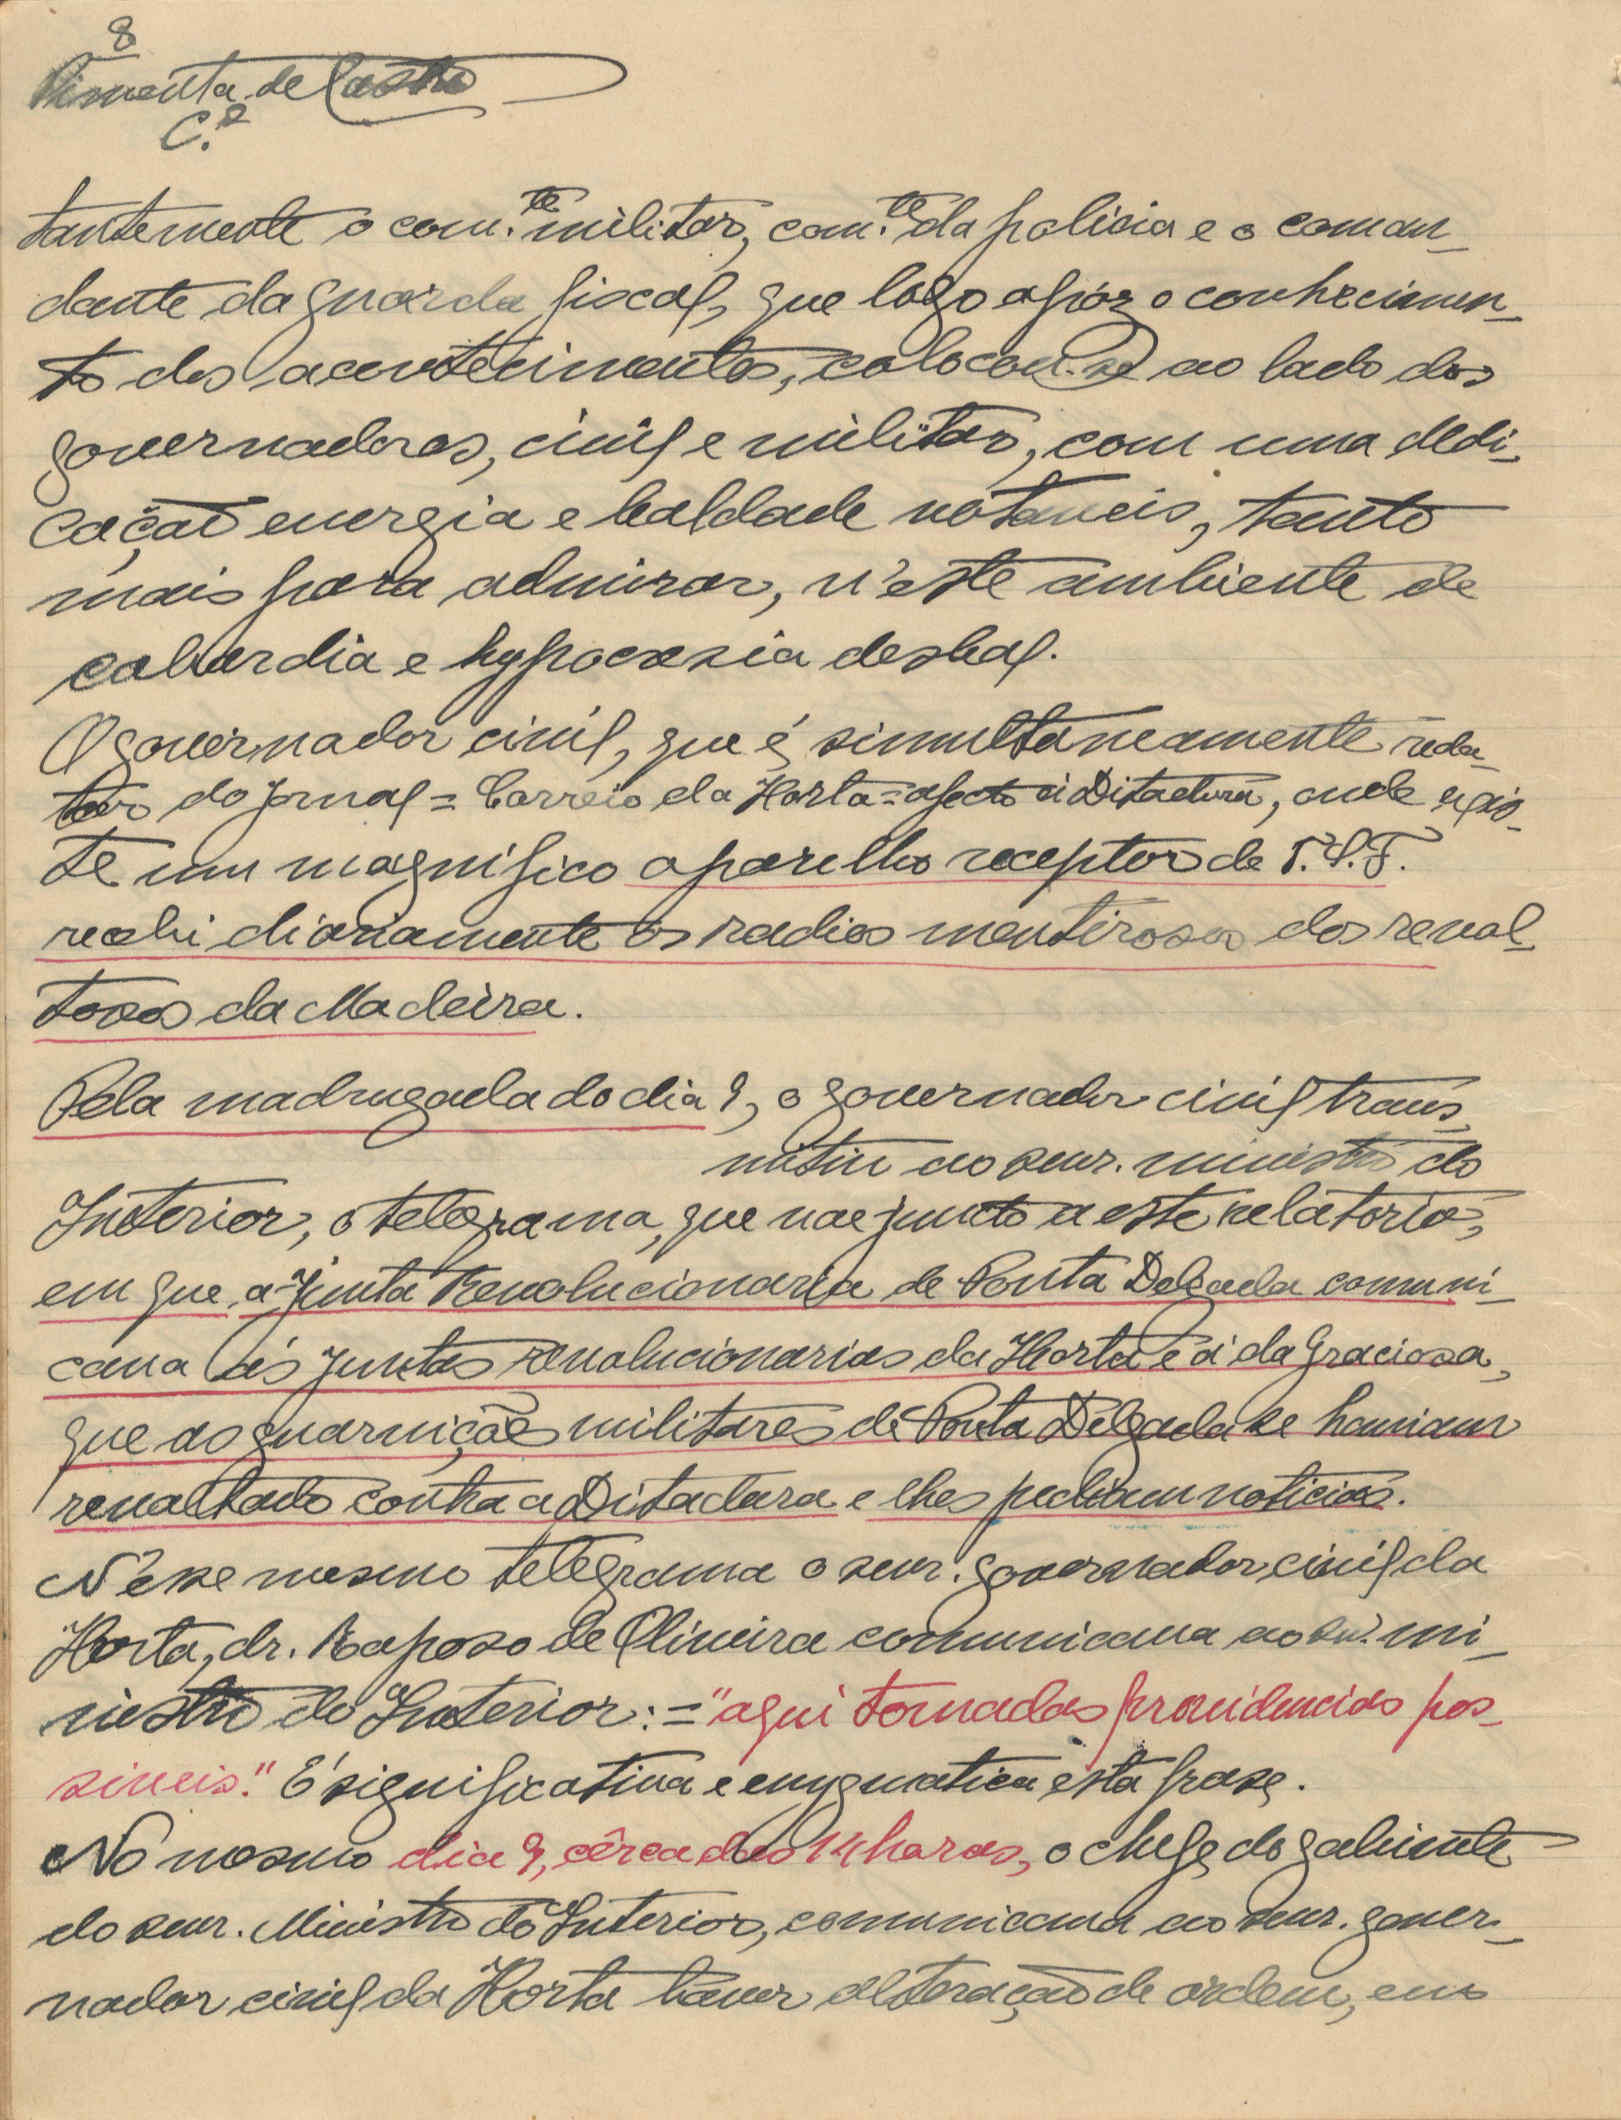 8
Pimenta de Castro
C.el
tantemente o com.te militar, com.te da policia e o coman_
dante da guarda fiscal, que logo apóz o conhecimen_
to dos acontecimentos, colocou-se ao lado dos
governadores, civil e militar, com uma dedi_
cação energia e lealdade notaveis, tanto
mais para admirar, n'este ambiente de
cobardia e hypocrisia desleal.
O governador civil, que é simultaneamente reda_
tor do jornal = Correio da Horta = afecto á Ditadura, onde exis_
te um magnifico aparelho receptor de T.S.F.
recebi diariamente os radios mentirosos dos revol_
tosos da Madeira.
Pela madrugada do dia 9, o governador civil trans_
mitiu ao snr. ministro do
Interior, o telegrama, que vae juncto a este relatorio,
em que a Junta Revolucionaria de Ponta Delgada comuni_
cava ás juntas revolucionarias da Horta e á da Graciosa,
que as guarnições militares de Ponta Delgada se haviam
revoltado contra a Ditadura e lhes pediam noticias.
N'esse mesmo telegrama o snr. governador civil da
Horta, dr. Raposo de Oliveira comunicava ao snr. mi_
nistro do Interior: = "aqui tomadas providencias pos_
siveis." É significativa e enygmatica esta frase.
No mesmo dia 9, cêrca das 14 horas, o chefe do gabinete
do snr. Ministro do Interior, comunicava ao snr. gover_
nador civil da Horta haver alteração de ordem, em